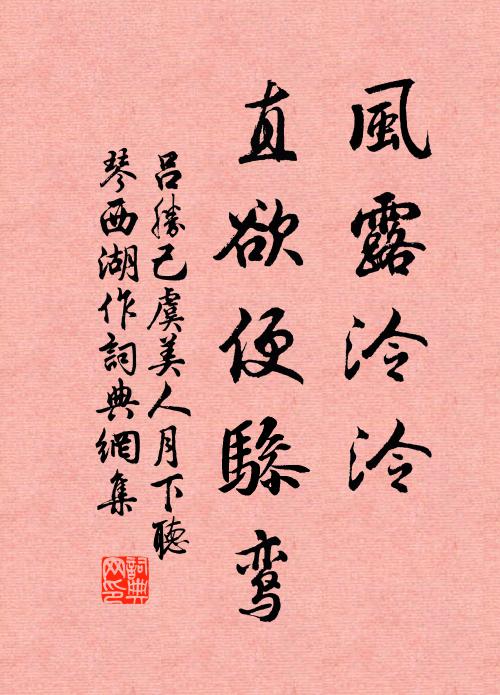 風露泠泠
直欲便驂鸾
呂勝己虞美人月下聽
琴西湖作詞典網集
詞典
网印